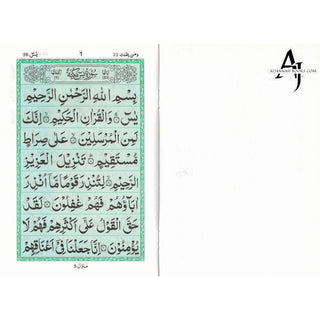 وَمَنْ يَّقْنُتْ ٢٢
٦
يٰسٓ ٣٦
سُوْرَةُ يٰسٓ مَكِّيَّةٌ
بِسْمِ اللهِ الرَّحْمٰنِ الرَّحِيْمِ
يٰسٓ ۚ وَالْقُرْاٰنِ الْحَكِيْمِ ۙ اِنَّكَ
لَمِنَ الْمُرْسَلِيْنَ ۙ عَلٰى صِرَاطٍ
مُّسْتَقِيْمٍ ؕ تَنْزِيْلَ الْعَزِيْزِ
الرَّحِيْمِ ۙ لِتُنْذِرَ قَوْمًا مَّاۤ اُنْذِرَ
اٰبَآؤُهُمْ فَهُمْ غٰفِلُوْنَ ۞ لَقَدْ
حَقَّ الْقَوْلُ عَلٰٓى اَكْثَرِهِمْ فَهُمْ لَا
يُؤْمِنُوْنَ ۞ اِنَّا جَعَلْنَا فِيْۤ اَعْنَاقِهِمْ
منزل ٥
AJ
ALHANNAH BOOKS.COM